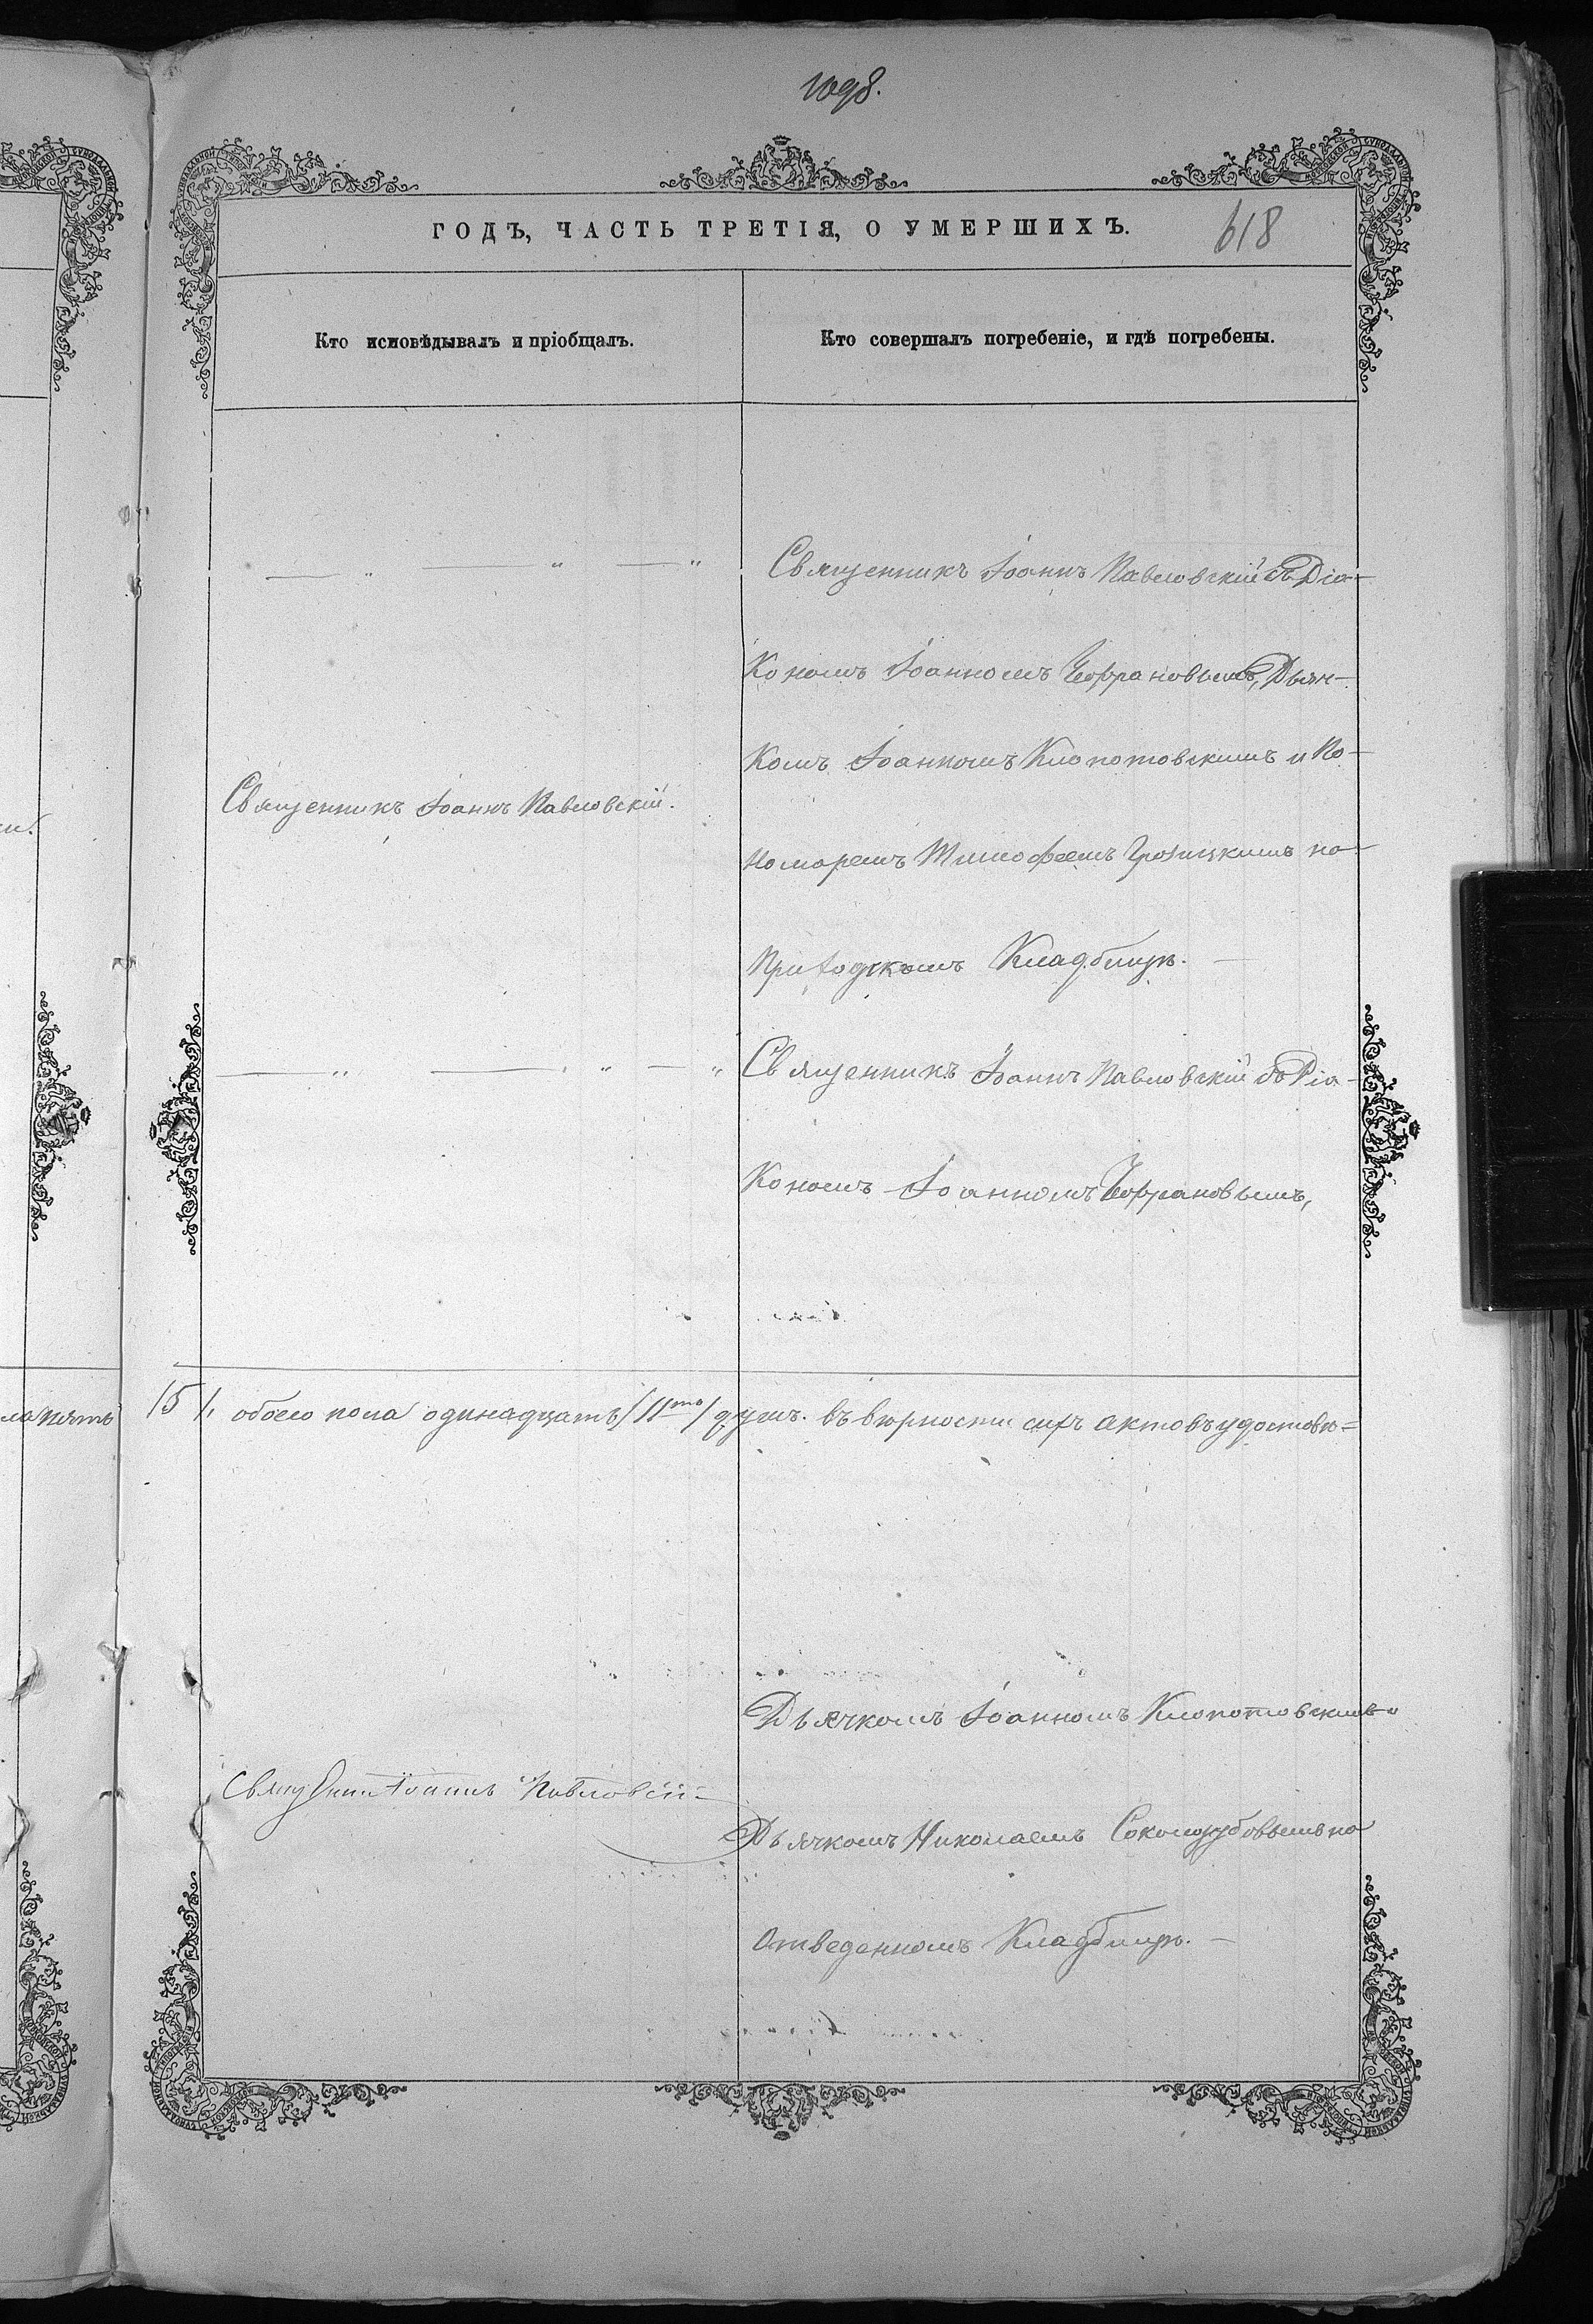 1098.
ГОДЪ, ЧАСТЬ ТРЕТІЯ, О УМЕРШИХЪ.
618
Кто исповѣдывалъ и пріобщалъ.
Кто совершалъ погребеніе, и гдѣ погребены.
Священникъ Іоаннъ Павловскій съ Діа-
кономъ Іоанномъ Чефрановымъ, Дьяч-
комъ Іоанномъ Клопотовскимъ и По-
Священникъ Іоаннъ Павловскій.
номаремъ Тимофеемъ на
Приходскомъ Кладбищѣ.
Священникъ Іоаннъ Павловскій съ Діа-
кономъ Іоанномъ Чефрановымъ,
пять /5/, обоего пола одинадцать /11ть/ душъ. въ вѣрности сихъ актовъ удостовѣ=
Дьячкомъ Іоанномъ Клопотовскимъ и
Іоаннъ Павловскій
Дьячкомъ Николаемъ на
Отведенномъ Кладбищѣ.